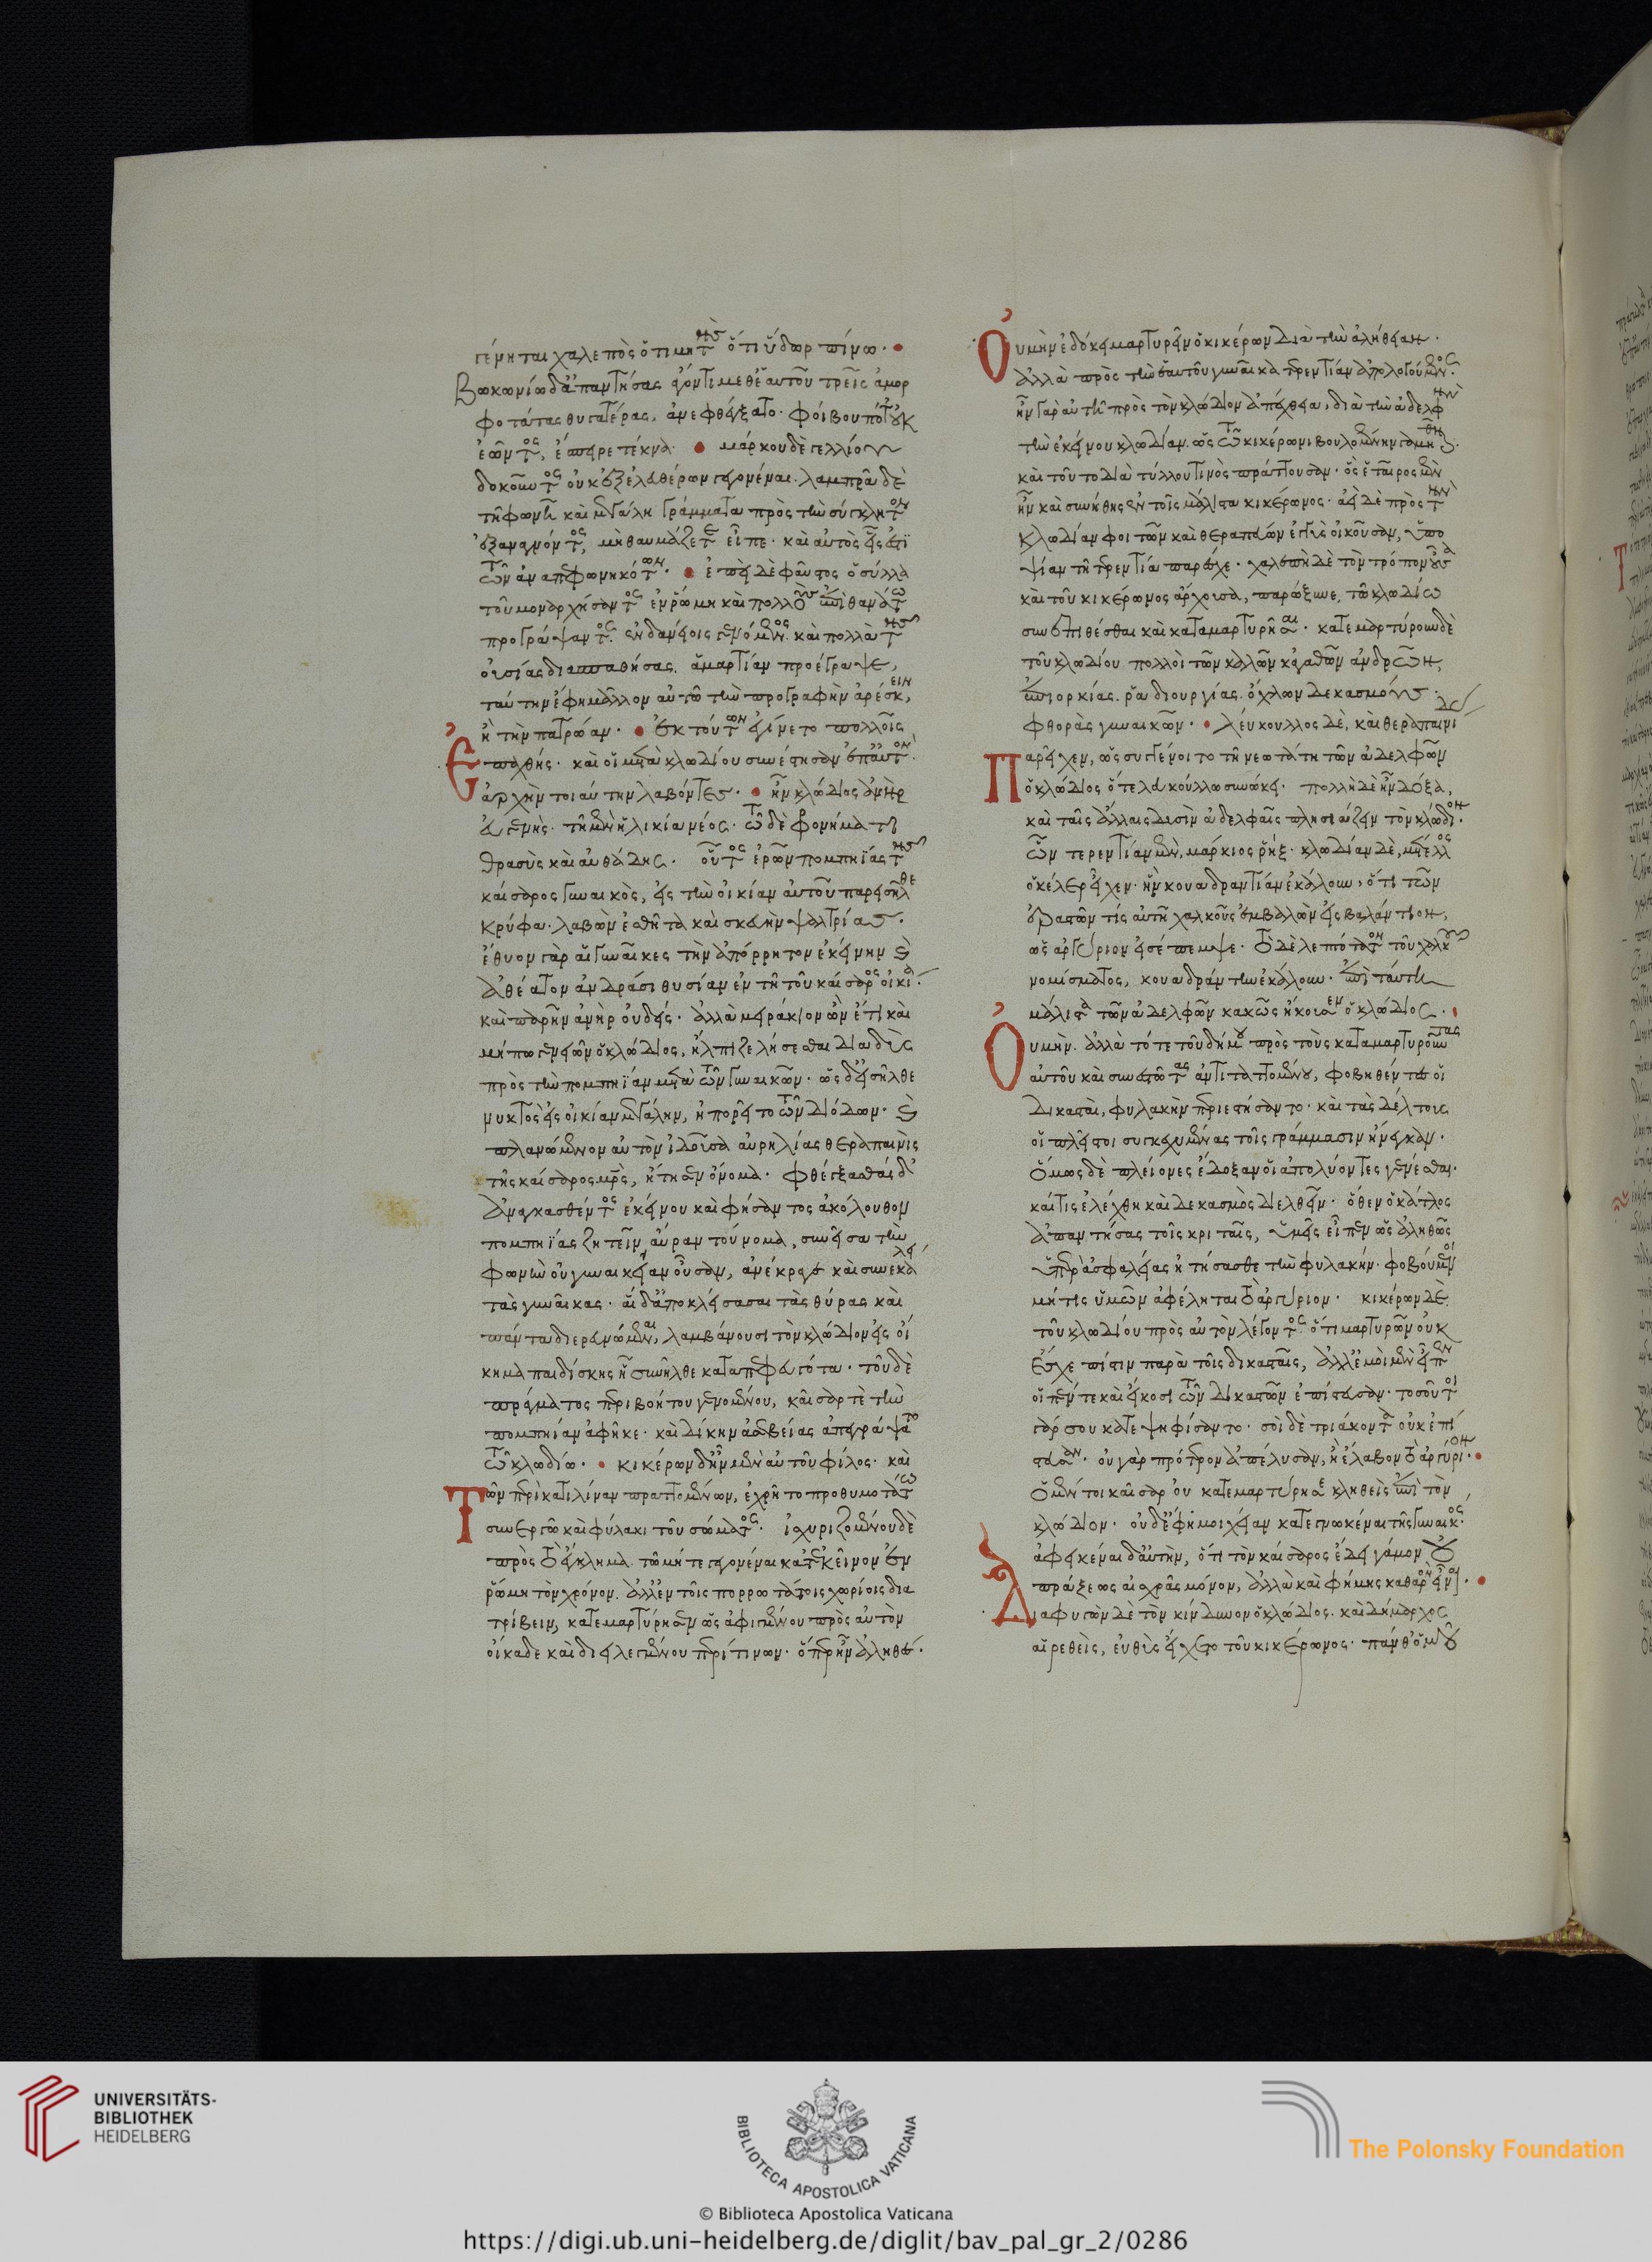 γένηται χαλεπὸς ὅτι μή της ὅτι ὕδωρ πίνω.
Βωκωνίω δ' ἀπαντήσας ἄγοντι μεθ' ἑαυτοῦ τρεῖς ἀμορ
φοτάτας θυγατέρας, ἀνεφθέγξατο. φοίβου ποτ' οὐκ
ἐῶντος, ἔσπειρε τέκνα. μάρκου δὲ γελλίου
δοκοῦντος οὐκ ἐξ ἐλευθέρων γεγονέναι. λαμπρᾷ δὲ
τῇ φωνῇ καὶ μεγάλῃ γράμματα πρὸς τὴν σύγκλητον
ἐξαναγνόντος, μὴ θαυμάζετε εἶπε. καὶ αὐτὸς εἷς ἐστὶ
τῶν ἀναπεφωνηκότων. ἐπεὶ δὲ φαῦστος ὁ σύλλα
τοῦ μοναρχήσαντος ἐν ῥώμῃ καὶ πολλοὺς ἐπὶ θανάτω
προγράψαντος. ἐν δανείοις γενόμενος. καὶ πολλὰ τῆς
οὐσίας διασπαθήσας. ἁμαρτίαν προέγραψε,
ταύτην ἔφη μᾶλλον αὐτῶ τὴν προγραφὴν ἀρέσκειν,
ἢ τὴν πατρώαν. ἐκ τούτων ἐγίνετο πολλοῖς
ἐπαχθής. καὶ οἱ μετὰ κλωδίου συνέστησαν ἐπ' αὐτὸν.
ἀρχὴν τοιαύτην λαβόντες. ἦν κλώδιος ἀνὴρ
εὐγενής. τῆ μὲν ἡλικία νέος. τῶ δὲ φρονήματι
θρασὺς καὶ αὐθάδης. οὗτος ἐρῶν πομπηΐας τῆς
καίσαρος γυναικὸς, εἰς τὴν οἰκίαν αὐτοῦ παρεισῆλθε
κρύφα. λαβὼν ἐσθῆτα καὶ σκευὴν ψαλτρίας.
ἔθυον γὰρ αἱ γυναῖκες τὴν ἀπόρρητον ἐκείνην καὶ
ἀθέατον ἀνδράσι θυσίαν ἐν τῇ τοῦ καίσαρος οἰκία.
καὶ παρῆν ἀνὴρ οὐδείς. ἀλλὰ μειράκιον ὢν ἔτι καὶ
μήπω γενειῶν ὁ κλώδιος, ἤλπιζε λήσεσθαι διαδὺς
πρὸς τὴν πομπηΐαν μετὰ τῶν γυναικῶν. ὡς δ' εἰσῆλθε
νυκτὸς εἰς οἰκίαν μεγάλην, ἠπορεῖτο τῶν διόδων. καὶ
πλανώμενον αὐτὸν ἰδοῦσα αὐρηλίας θεραπαινὶς
τῆς καίσαρος μητρὸς, ᾔτησεν ὄνομα. φθέγξασθαι δ'
ἀναγκασθέντος ἐκείνου καὶ φήσαντος ἀκόλουθον
πομπηΐας ζητεῖν αὔραν τοὔνομα, συνεῖσα τὴν
φωνὴν οὐ γυναικείαν οὖσαν, ἀνέκραγε καὶ συνεκάλει
τὰς γυναῖκας. αἱ δ' ἀποκλείσασαι τὰς θύρας καὶ
πάντα διερευνώμεναι, λαμβάνουσι τὸν κλώδιον εἰς οἴ
κημα παιδίσκης ᾗ συνῆλθε καταπεφευγότα. τοῦ δὲ
πράγματος περιβοήτου γενομένου, καῖσάρ τε τὴν
πομπηίαν ἀφῆκε. καὶ δίκην ἀσεβείας ἀπεγράψατο
τῶ κλωδίω. κικέρων δ' ἦν μὲν αὐτοῦ φίλος. καὶ
τῶν περὶ κατιλίναν πραττομένων, ἐχρῆτο προθυμοτάτω
συνεργῶ καὶ φύλακι τοῦ σώματος. ἰσχυριζομένου δὲ
πρὸς τὸ ἔγκλημα. τῶ μήτε γεγονέναι κατ' ἐκεῖνον ἐν
ῥώμῃ τὸν χρόνον. ἀλλ' ἐν τοῖς πορρωτάτοις χωρίοις δια
τρίβειν, κατεμαρτύρησεν ὡς ἀφιγμένου πρὸς αὐτὸν
οἴκαδε καὶ διειλεγμένου περί τινων. ὅπερ ἦν ἀληθές.
Οὐ μὴν ἐδόκει μαρτυρεῖν ὁ κικέρων διὰ τὴν ἀλήθειαν.
ἀλλὰ πρὸς τὴν ἑαυτοῦ γυναῖκα τερεντίαν ἀπολογούμενος.
ἦν γὰρ αὐτῇ πρὸς τὸν κλώδιον ἀπέχθεια, διὰ τὴν ἀδελφὴν
τὴν ἐκείνου κλωδίαν. ὡς τῶ κικέρωνι βουλομένην γαμηθῆναι.
καὶ τοῦτο διὰ τύλλου τινὸς πράττουσαν. ὃς ἑταῖρος μὲν
ἦν καὶ συνήθης ἐν τοῖς μάλιστα κικέρωνος. ἀεὶ δὲ πρὸς τὴν
κλωδίαν φοιτῶν καὶ θεραπεύων ἐγγὺς οἰκοῦσαν, ὑπο
ψίαν τῇ τερεντία παρέσχε. χαλεπὴ δὲ τὸν τρόπον οὖσα
καὶ τοῦ κικέρωνος ἄρχουσα, παρώξυνε, τῶ κλωδίω
συνεπιθέσθαι καὶ καταμαρτυρῆσαι. κατεμαρτύρουν δὲ
τοῦ κλωδίου πολλοὶ τῶν καλῶν κἀγαθῶν ἀνδρῶν,
ἐπιορκίας. ῥαδιουργίας. ὄχλων δεκασμοὺς.
φθορὰς γυναικῶν. λεύκουλλος δὲ, καὶ θεραπαινίδας
παρεῖχεν, ὡς συγγένοιτο τῇ νεωτάτῃ τῶν ἀδελφῶν
ὁ κλώδιος ὅτε λευκούλλω συνώκει. πολλὴ δὲ ἦν δόξα,
καὶ ταῖς ἄλλαις δυσὶν ἀδελφαῖς πλησιάζειν τὸν κλώδιον.
ὧν τερεντίαν μὲν, μάρκιος ῥήξ. κλωδίαν δὲ, μέτελλος
ὁ κέλερ εἶχεν. ἣν κουαδραντίαν ἐκάλουν, ὅτι τῶν
ἐραστῶν τίς αὐτῇ χαλκοῦς ἐμβαλὼν εἰς βαλάντιον,
ὡς ἀργύριον εἰσέπεμψε. τὸ δὲ λεπτότατον τοῦ χαλκοῦ
νομίσματος, κουαδράντην ἐκάλουν. ἐπὶ ταύτῃ
μάλιστα τῶν ἀδελφῶν κακῶς ἤκουσεν ὁ κλώδιος.
Οὐ μὴν. ἀλλὰ τότε τοῦ δήμου πρὸς τοὺς καταμαρτυροῦντας
αὐτοῦ καὶ συνεστῶτας ἀντιταττομένου, φοβηθέντες οἱ
δικασταὶ, φυλακὴν περιεστήσαντο. καὶ τὰς δέλτους
οἱ πλεῖστοι συγκεχυμένας τοῖς γράμμασιν ἤνεγκαν.
ὅμως δὲ πλείονες ἔδοξαν οἱ ἀπολύοντες γενέσθαι.
καί τις ἐλέχθη καὶ δεκασμὸς διελθεῖν. ὅθεν ὁ κάτλος
ἀπαντήσας τοῖς κριταῖς, ὑμεῖς εἶπεν ὡς ἀληθῶς
ὑπὲρ ἀσφαλείας ᾐτήσασθε τὴν φυλακὴν. φοβούμενοι
μή τις ὑμῶν ἀφέληται τὸ ἀργύριον. κικέρων δὲ
τοῦ κλωδίου πρὸς αὐτὸν λέγοντος ὅτι μαρτυρῶν οὐκ
ἔσχε πίστιν παρὰ τοῖς δικασταῖς, ἀλλ' ἐμοὶ μὲν εἶπεν
οἱ πέντε καὶ εἴκοσι τῶν δικαστῶν ἐπίστευσαν. τοσοῦτοι
γάρ σου κατεψηφίσαντο. σοὶ δὲ τριάκοντα οὐκ ἐπί
στευσαν. οὐ γὰρ πρότερον ἀπέλυσαν, ἢ ἔλαβον τὸ ἀργύριον.
ὁ μέντοι καῖσαρ οὐ κατεμαρτύρησε κληθεὶς ἐπὶ τὸν
κλώδιον. οὐδ' ἔφη μοιχείαν κατεγνωκέναι τῆς γυναικός.
ἀφεικέναι δ' αὐτὴν, ὅτι τὸν καίσαρος ἔδει γάμον οὐ
πράξεως αἰσχρᾶς μόνον, ἀλλὰ καὶ φήμης καθαρὸν εἶναι.
Διαφυγὼν δὲ τὸν κίνδυνον ὁ κλώδιος. καὶ δήμαρχος
αἱρεθεὶς, εὐθὺς εἴχετο τοῦ κικέρωνος. πάνθ' ὁμοῦ
UNIVERSITÄTS-
BIBLIOTHEK
HEIDELBERG
BIBLIOTECA APOSTOLICA VATICANA
The Polonsky Foundation
© Biblioteca Apostolica Vaticana
https://digi.ub.uni-heidelberg.de/diglit/bav_pal_gr_2/0286